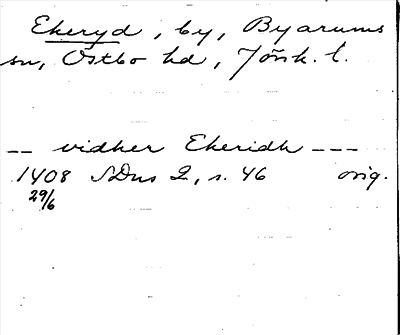 Ekeryd, by, Byarums
sn, Östbo hd, Jönk. l.
-- vidher Ekeridh ---
1408 SDns 2, s. 46 orig.
29/6